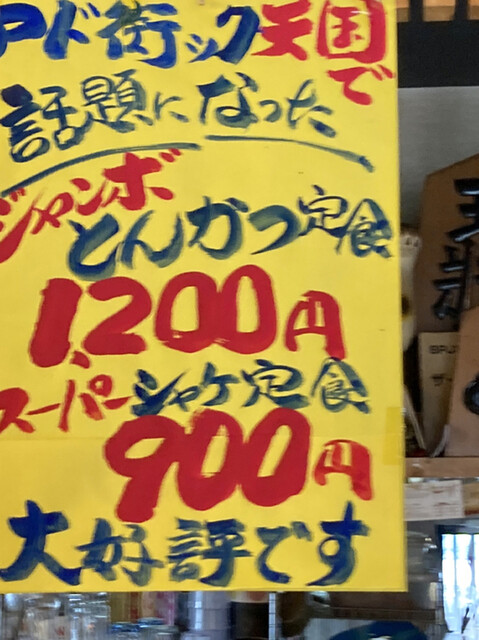 アド街ック天国で
話題になった
ジャンボ
とんかつ定食
1,200円
スーパーシャケ定食
900円
大好評です